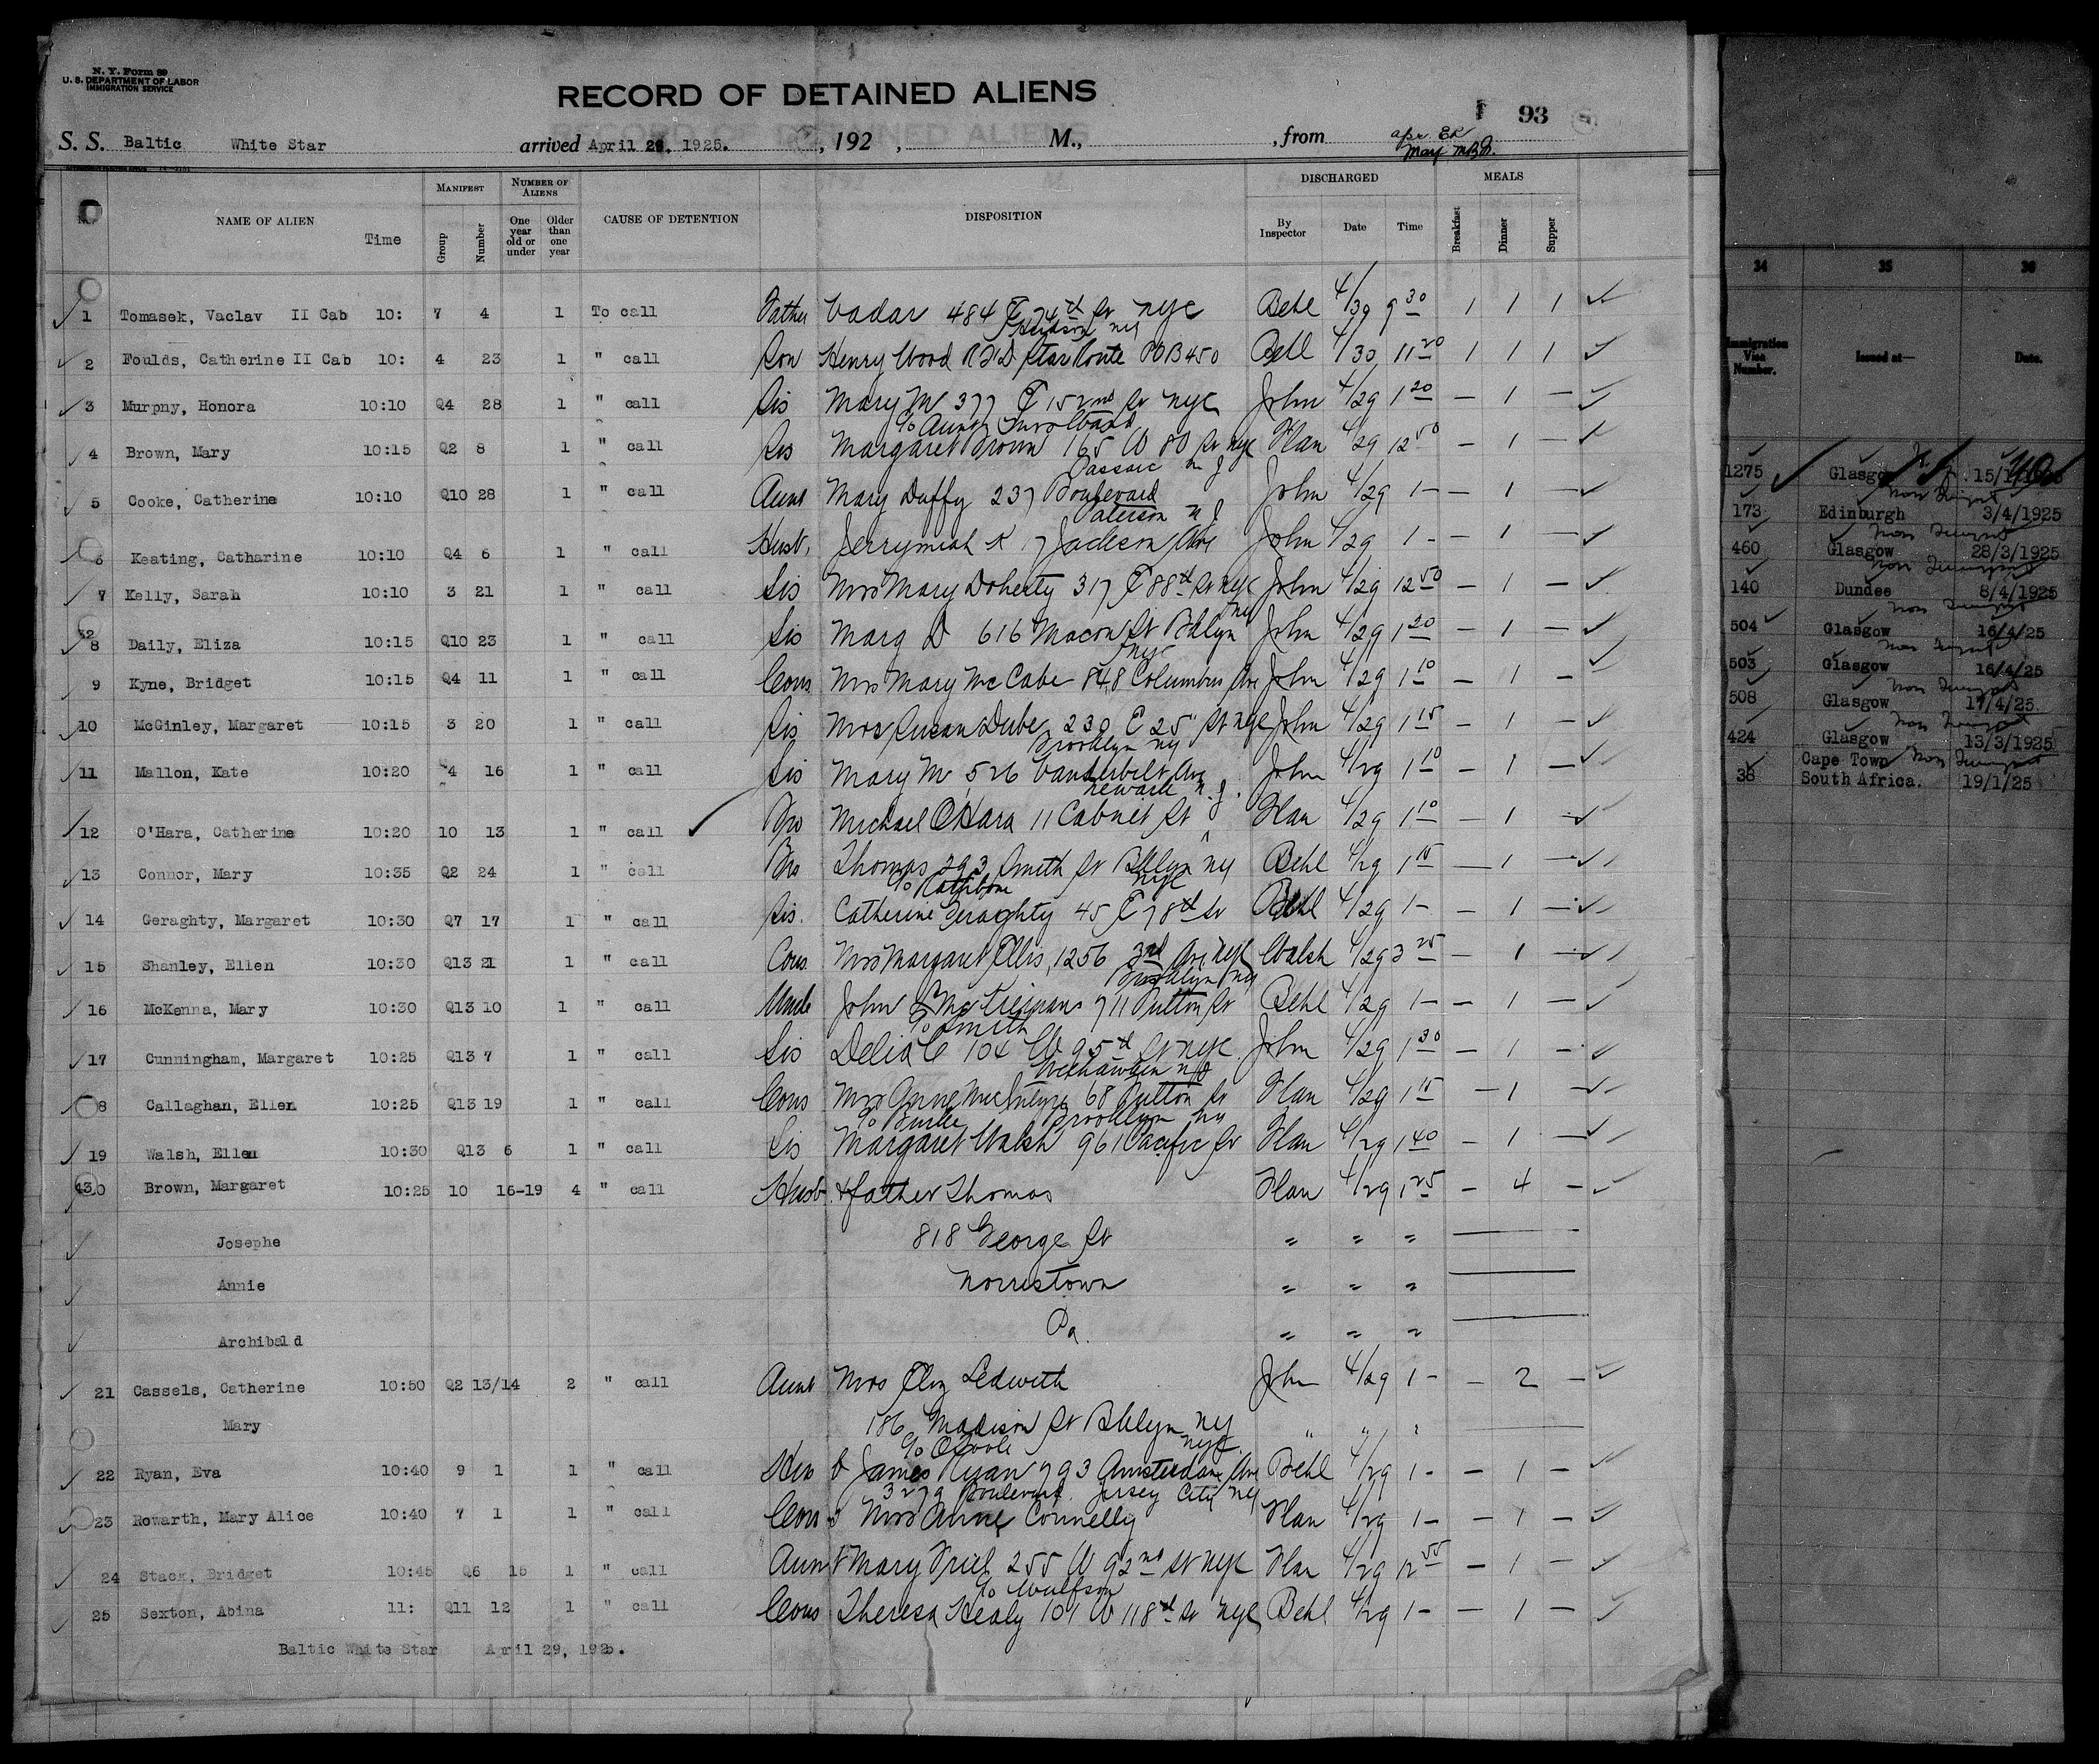 N. Y. Form 89
U. S. DEPARTMENT OF LABOR
IMMIGRATION SERVICE
RECORD OF DETAINED ALIENS
93
S. S. Baltic White Star arrived April 29, 1925. , 192 , M., , from
Apr. ER
May
No. NAME OF ALIEN Time MANIFEST Group Number NUMBER OF ALIENS One year old or under Older than one year CAUSE OF DETENTION DISPOSITION DISCHARGED By Inspector Date Time MEALS Breakfast Dinner Supper
1 Tomasek, Vaclav II Cab 10: 7 4 1 To call Father 484 E 74th St NYC Behl 4/30 9 30 1 1 1
Hudson NY
2 Foulds, Catherine II Cab 10: 4 23 1 " call Son Henry Wood RFD Star Route POB 450 Behl 4/30 11 20 1 1 1
3 Murpny, Honora 10:10 Q4 28 1 " call Sis Mary M 377 E 152nd St NYC John 4/29 1 20 – 1 –
4 Brown, Mary 10:15 Q2 8 1 " call Sis Margaret Brown 165 W 80 St NYC Han 4/29 12 50 – 1 –
Passaic N J
5 Cooke, Catherine 10:10 Q10 28 1 " call Aunt Mary Duffy 237 Boulevard John 4/29 1– – 1 –
Paterson N J
6 Keating, Catharine 10:10 Q4 6 1 " call Husb. Jerrymiah K 17 Jackson Ave John 4/29 1– – 1 –
7 Kelly, Sarah 10:10 3 21 1 " call Sis Mrs Mary Doherty 317 E 88th St NYC John 4/29 12 50 – 1 –
8 Daily, Eliza 10:15 Q10 23 1 " call Sis Marg D 616 Macon St Bklyn NY John 4/29 1 20 – 1 –
NYC
9 Kyne, Bridget 10:15 Q4 11 1 " call Cous Mrs Mary McCabe 848 Columbus Ave John 4/29 1 10 – 1 –
10 McGinley, Margaret 10:15 3 20 1 " call Sis Mrs Susan Dube 230 E 25 St NYC John 4/29 1 15 – 1 –
Brooklyn NY
11 Mallon, Kate 10:20 4 16 1 " call Sis Mary M 526 Vanderbilt Ave John 4/29 1 10 – 1 –
Newark N.J.
12 O'Hara, Catherine 10:20 10 13 1 " call Bro Michael OHara 11 Cabinet St Han 4/29 1 10 – 1 –
13 Connor, Mary 10:35 Q2 24 1 " call Bro Thomas 293 Smith St Bklyn NY Behl 4/29 1 15 – 1 –
c/o Rathbone NYC
14 Geraghty, Margaret 10:30 Q7 17 1 " call Sis. Catherine Geraghty 45 E 78th St Behl 4/29 1– – 1 –
15 Shanley, Ellen 10:30 Q13 21 1 " call Cous Mrs Margaret Ellis, 1256 3rd Ave NYC Walsh 4/29 3 25 – 1 –
Brooklyn NY
16 McKenna, Mary 10:30 Q13 10 1 " call Uncle John McTiernan 711 Fulton St Behl 4/29 1– – 1 –
c/o Smith
17 Cunningham, Margaret 10:25 Q13 7 1 " call Sis Delia C 104 W 95th St NYC John 4/29 1 30 – 1 –
Weehawken NJ
18 Callaghan, Ellen 10:25 Q13 19 1 " call Cous Mrs Anne McIntyre 68 Fulton St Han 4/29 1 15 – 1 –
c/o Burke Brooklyn NY
19 Walsh, Ellen 10:30 Q13 6 1 " call Sis Margaret Walsh 961 Pacific St Han 4/29 1 40 – 1 –
20 Brown, Margaret 10:25 10 16-19 4 " call Husb & father Thomas Han 4/29 1 25 – 4 –
Josephe 818 George St " " "
Annie Norristown " " "
Archibald Pa. " " "
21 Cassels, Catherine 10:50 Q2 13/14 2 " call Aunt Mrs Eliz Ledwith John 4/29 1– – 2 –
Mary 186 Madison St Bklyn NY " " "
c/o OToole NYC
22 Ryan, Eva 10:40 9 1 1 " call Husb James Ryan 793 Amsterdam Ave Behl 4/29 1– – 1 –
3279 Boulevard Jersey City NJ
23 Rowarth, Mary Alice 10:40 7 1 1 " call Cous Mrs Anne Connelly Han 4/29 1– – 1 –
24 Stack, Bridget 10:45 Q6 15 1 " call Aunt Mary Friel 255 W 92nd St NYC Han 4/29 12 55 – 1 –
c/o Wulfson
25 Sexton, Abina 11: Q11 12 1 " call Cous Theresa Healy 101 W 118th St NYC Behl 4/29 1– – 1 –
Baltic White Star April 29, 1925.
34 35 36
Immigration Visa Number. Issued at— Date.
1275 Glasgow
173 Edinburgh 3/4/1925
460 Glasgow 28/3/1925
140 Dundee 8/4/1925
504 Glasgow 16/4/25
503 Glasgow 16/4/25
508 Glasgow 17/4/25
424 Glasgow 13/3/1925
38 Cape Town South Africa. 19/1/25